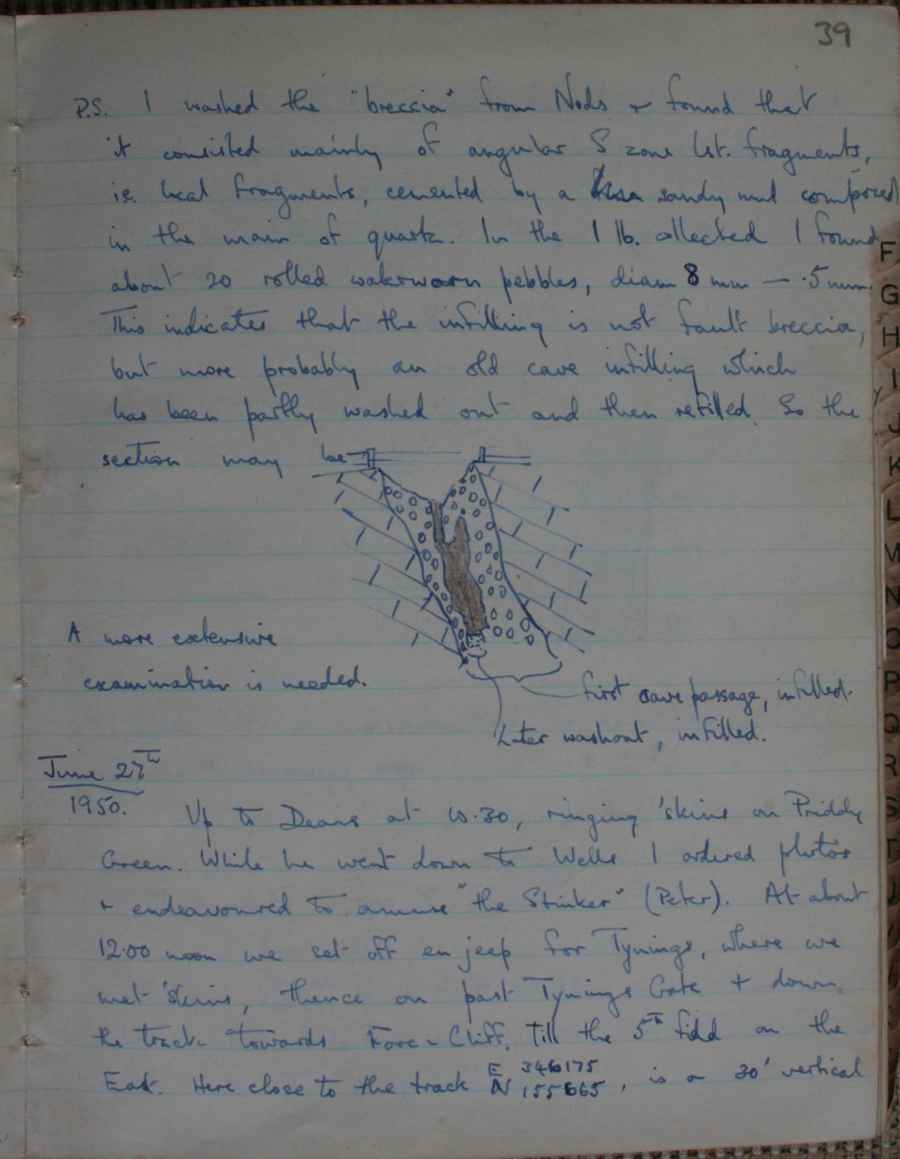 39
P.S. I washed the "breccia" from Nods + found that
it consisted mainly of angular S zone lst. fragments,
ie. local fragments, cemented by a sandy mud composed
in the main of quartz. In the 1 lb. collected I found
about 20 rolled waterworn pebbles, diam 8 mm — .5 mm.
This indicates that the infilling is not fault breccia,
but more probably an old cave infilling which
has been partly washed out and then refilled. So the
section may be
A more extensive
examination is needed.
first cave passage, infilled.
Later washout, infilled.
June 27th
1950.
Up to Deans at 10.30, ringing 'skins on Priddy
Green. While he went down to Wells I ordered photos
+ endeavoured to amuse "the Stinker" (Peter). At about
12.00 noon we set off en jeep for Tynings, where we
met 'skins, thence on past Tynings Gate + down
the track towards Fore Cliff. Till the 5th field on the
East. Here close to the track E 346175
N 155665, is a 30' vertical
F
G
H
I
J
K
L
M
N
O
P
Q
R
S
T
U